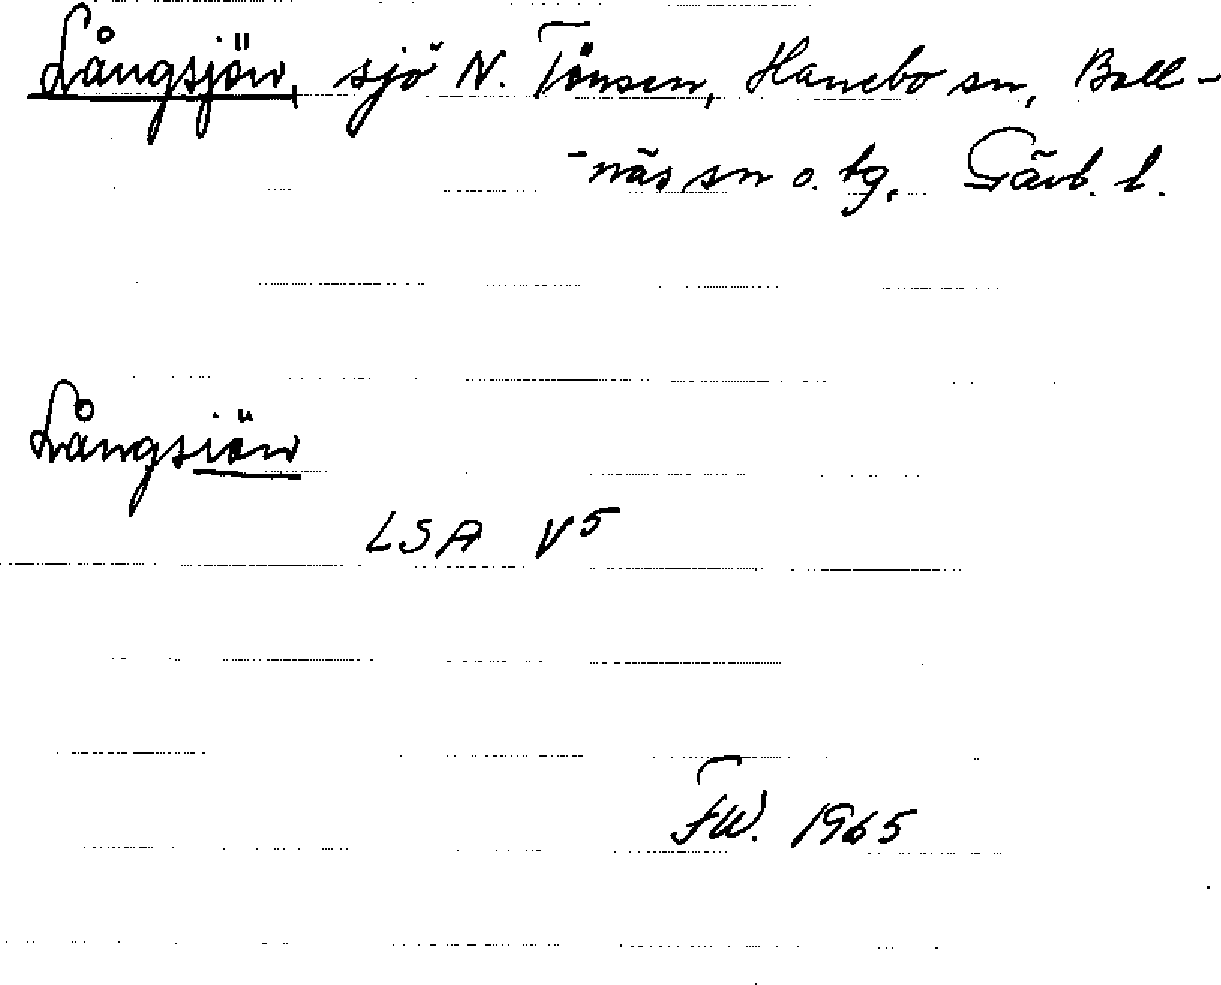 Långsjön, sjö N. Tönsen, Hanebo sn, Boll-
-näs sn o. tg, Gävb. l.
Långsiön
LSA V5
FW. 1965